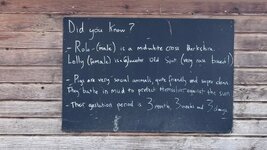 Did you know?
- Rob - (male) is a midwhite cross Berkshire.
Lolly (female) is a Gloucester Old Spot (very rare breed!)
- Pigs are very social animals, quite friendly and super clean.
They bathe in mud to protect themselves against the sun
- Their gestation period is 3 months, 3 weeks and 3 days